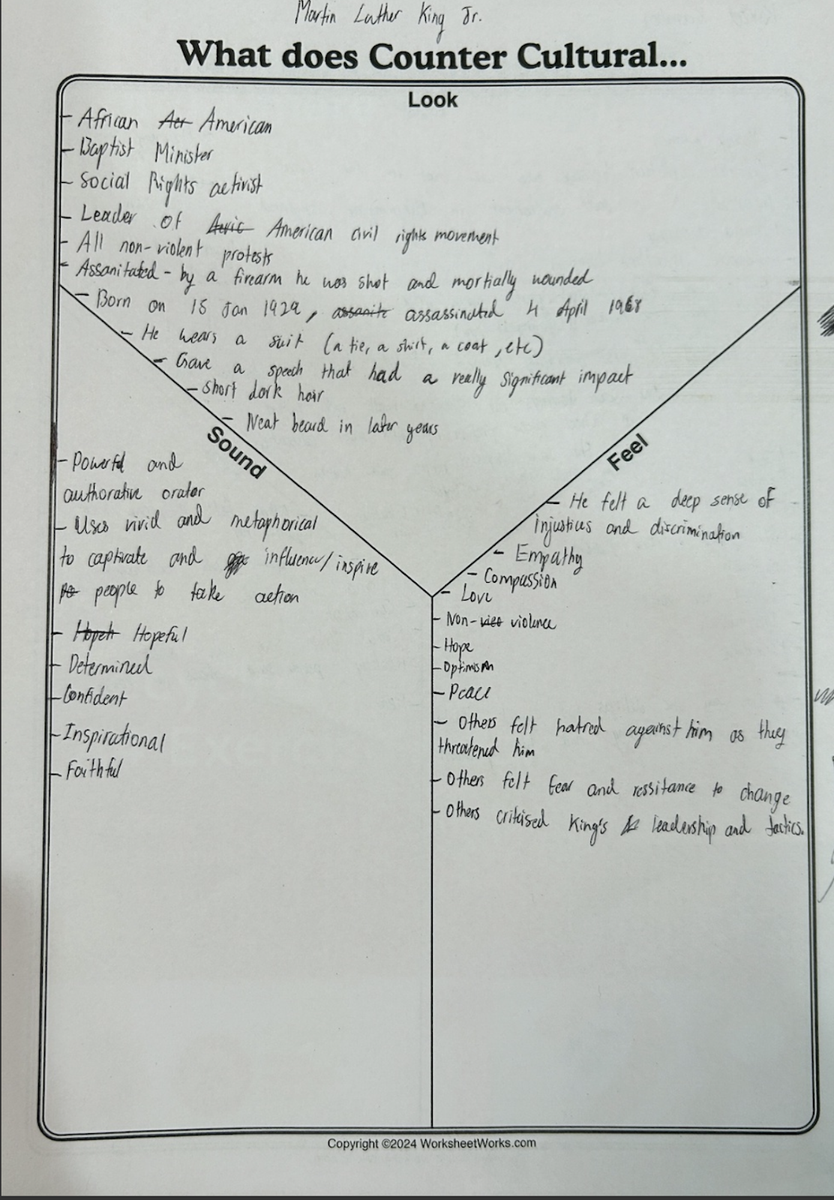 Martin Luther King Jr.
What does Counter Cultural...
Look
- African American
- Baptist Minister
- Social Rights activist
- Leader of American civil rights movement
- All non-violent protests
- Assanitated - by a firearm he was shot and mortially wounded
- Born on 15 Jan 1929, assanite assassinated 4 April 1968
- He wears a suit (a tie, a shirt, a coat, etc)
- Gave a speech that had a really significant impact
- short dark hair
- Neat beard in later years
Sound
- Powerful and
authorative orator
- Uses vivid and metaphorical
to captivate and influence/inspire
people to take action
- Hopeful
- Determined
- Confident
- Inspirational
- Faithful
Feel
- He felt a deep sense of
injustices and discrimination
- Empathy
- Compassion
- Love
- Non-violence
- Hope
- Optimism
- Peace
- Others felt hatred against him as they
threatened him
- Others felt fear and ressitance to change
- Others critcised King's leadership and tactics.
Copyright ©2024 WorksheetWorks.com